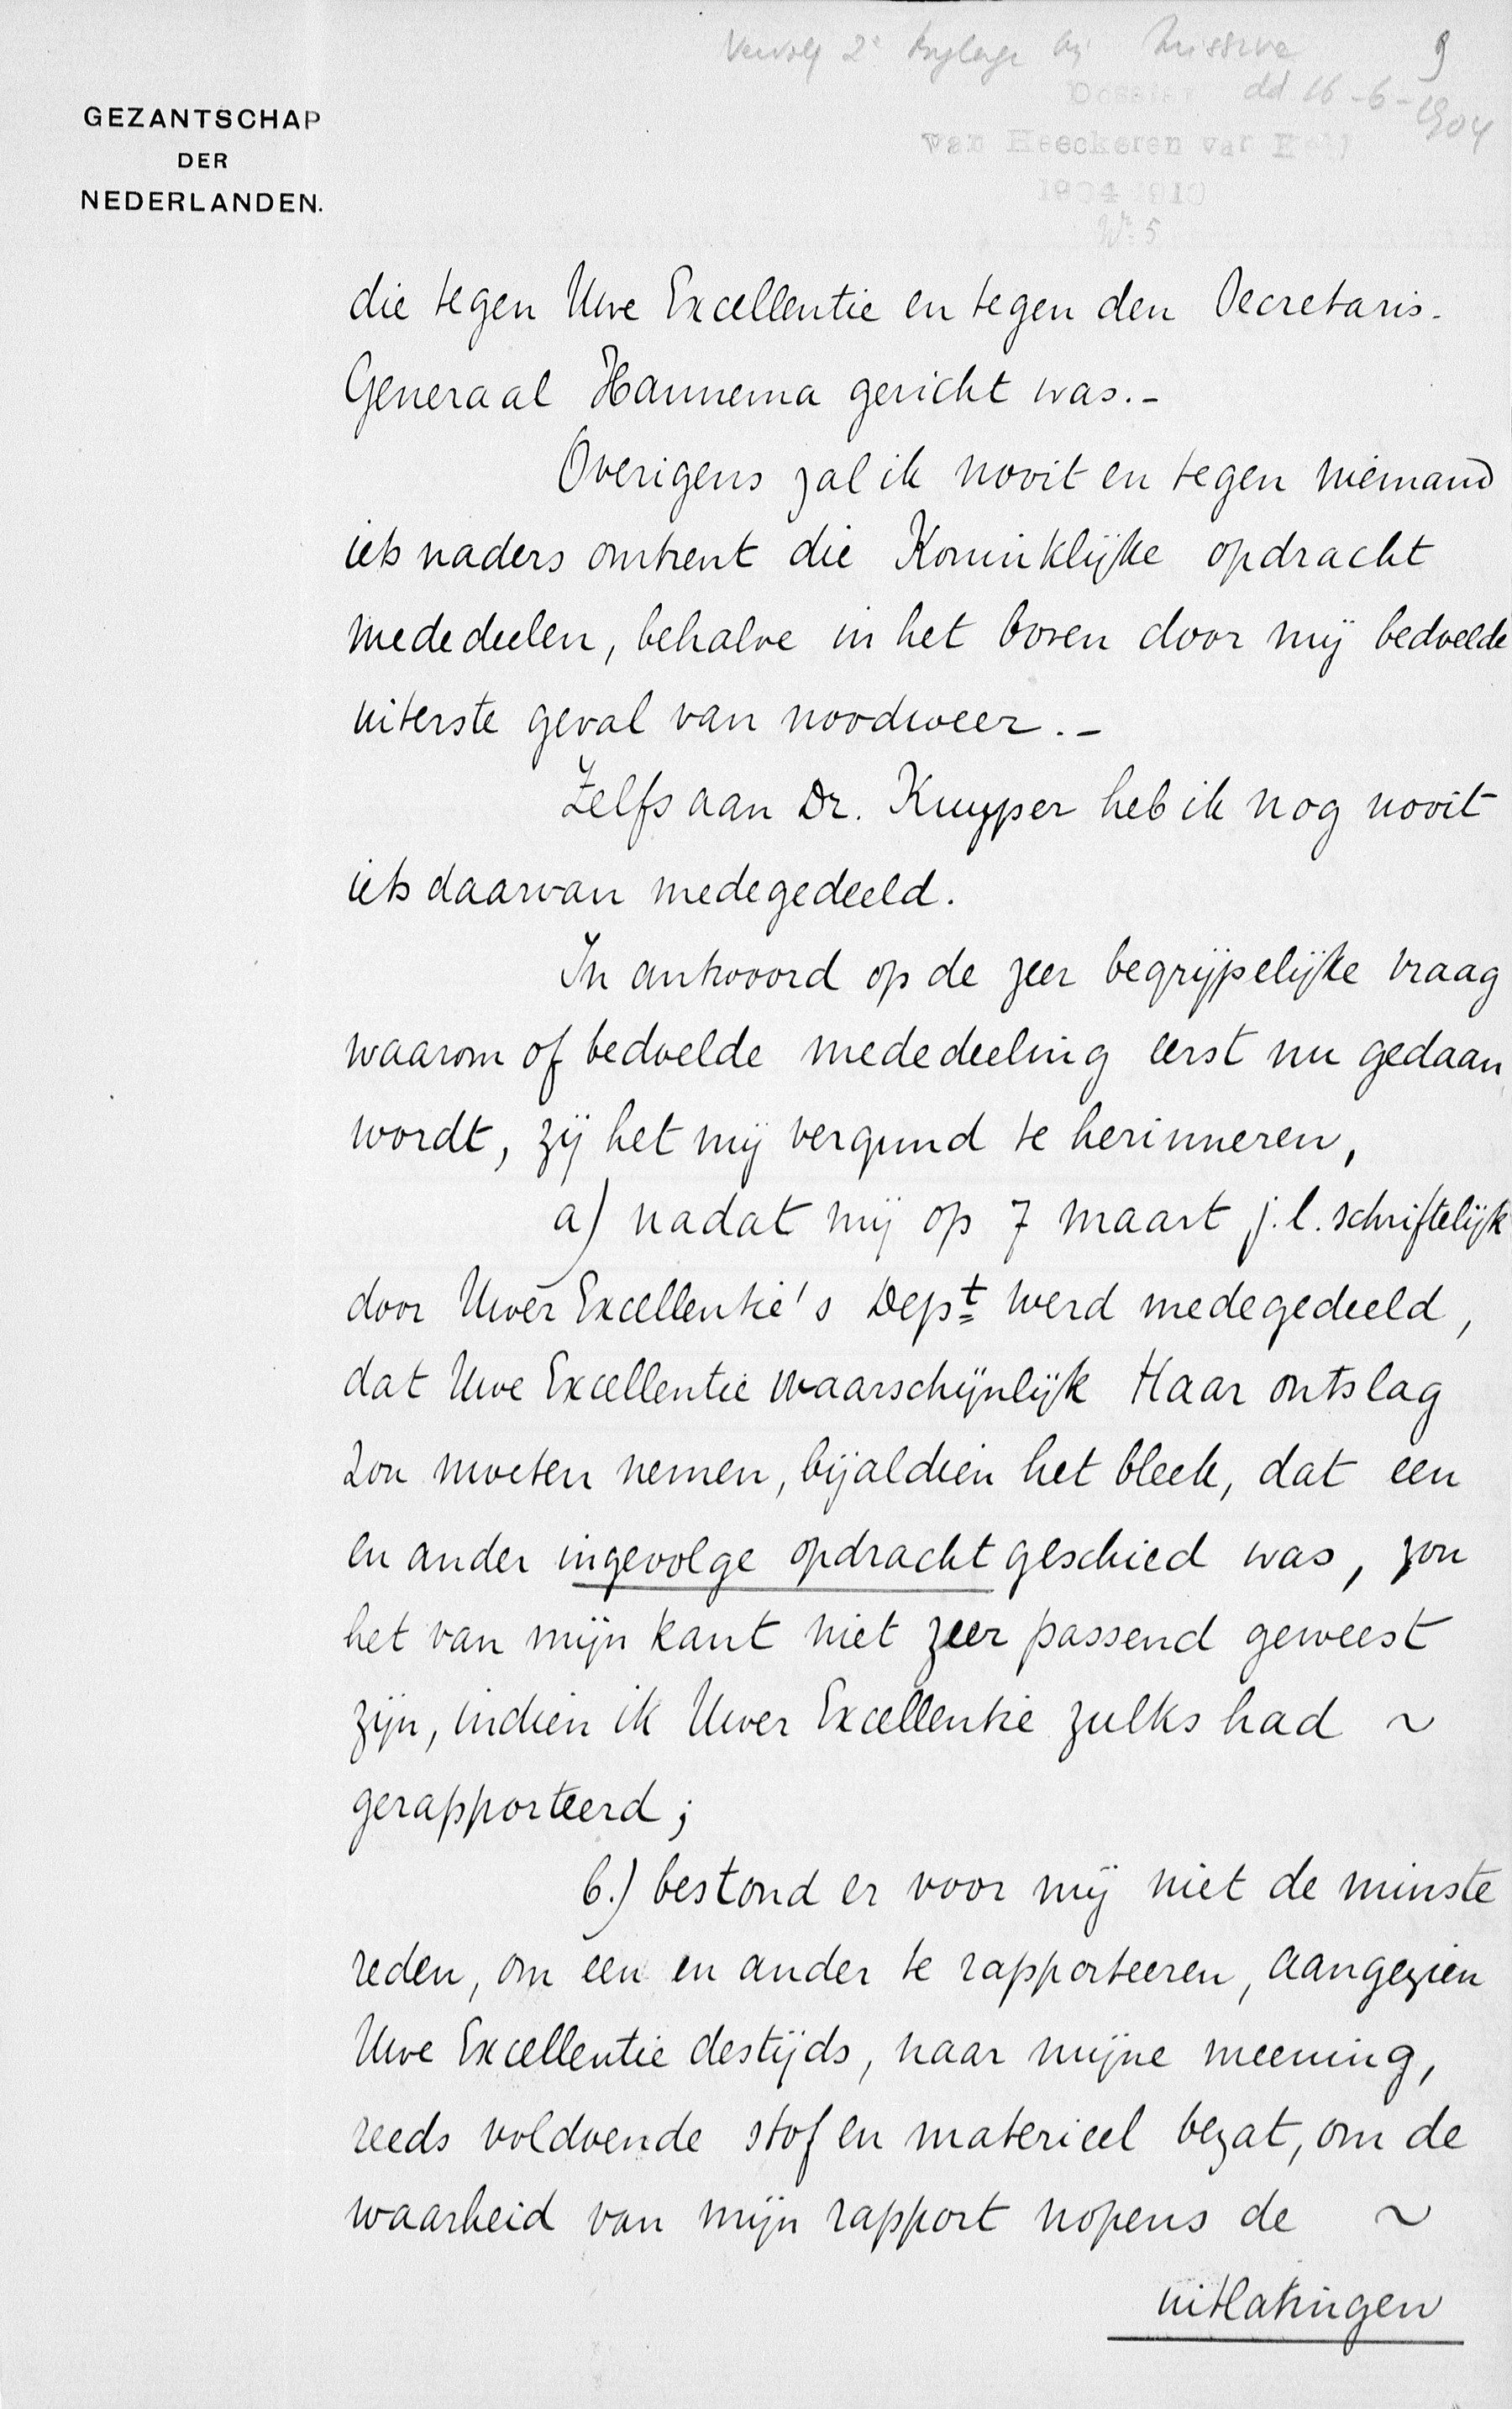 Vervolg 2e bijlage bij Missive 9
dd 16-6-1904
Dossier
van Heeckeren van Kell
1904-1910
No 5
GEZANTSCHAP
DER
NEDERLANDEN.
die tegen Uwe Excellentie en tegen den Secretaris-
Generaal Hannema gericht was.-
Overigens zal ik nooit en tegen niemand
iets naders omtrent die Koninklijke opdracht
mededeelen, behalve in het boven door mij bedoelde
uiterste geval van noodweer.-
Zelfs aan Dr. Kuyper heb ik nog nooit
iets daarvan medegedeeld.
In antwoord op de zeer begrijpelijke vraag
waarom of bedoelde mededeeling eerst nu gedaan
wordt, zij het mij vergund te herinneren,
a) nadat mij op 7 maart j.l. schriftelijk
door Uwer Excellentie's Dept werd medegedeeld,
dat Uwe Excellentie waarschijnlijk Haar ontslag
zou moeten nemen, bijaldien het bleek, dat een
en ander ingevolge opdracht geschied was, zou
het van mijn kant niet zeer passend geweest
zijn, indien ik Uwer Excellentie zulks had ~
gerapporteerd;
b.) bestond er voor mij niet de minste
reden, om een en ander te rapporteeren, aangezien
Uwe Excellentie destijds, naar mijne meening,
reeds voldoende stof en materieel bezat, om de
waarheid van mijn rapport nopens de ~
uitlatingen